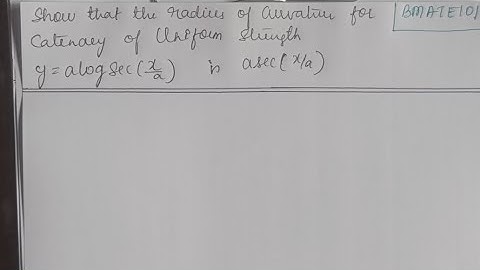 Show that the radius of curvature for
BMATE101
Catenary of Uniform Strength
y = a log sec(x/a) is a sec(x/a)